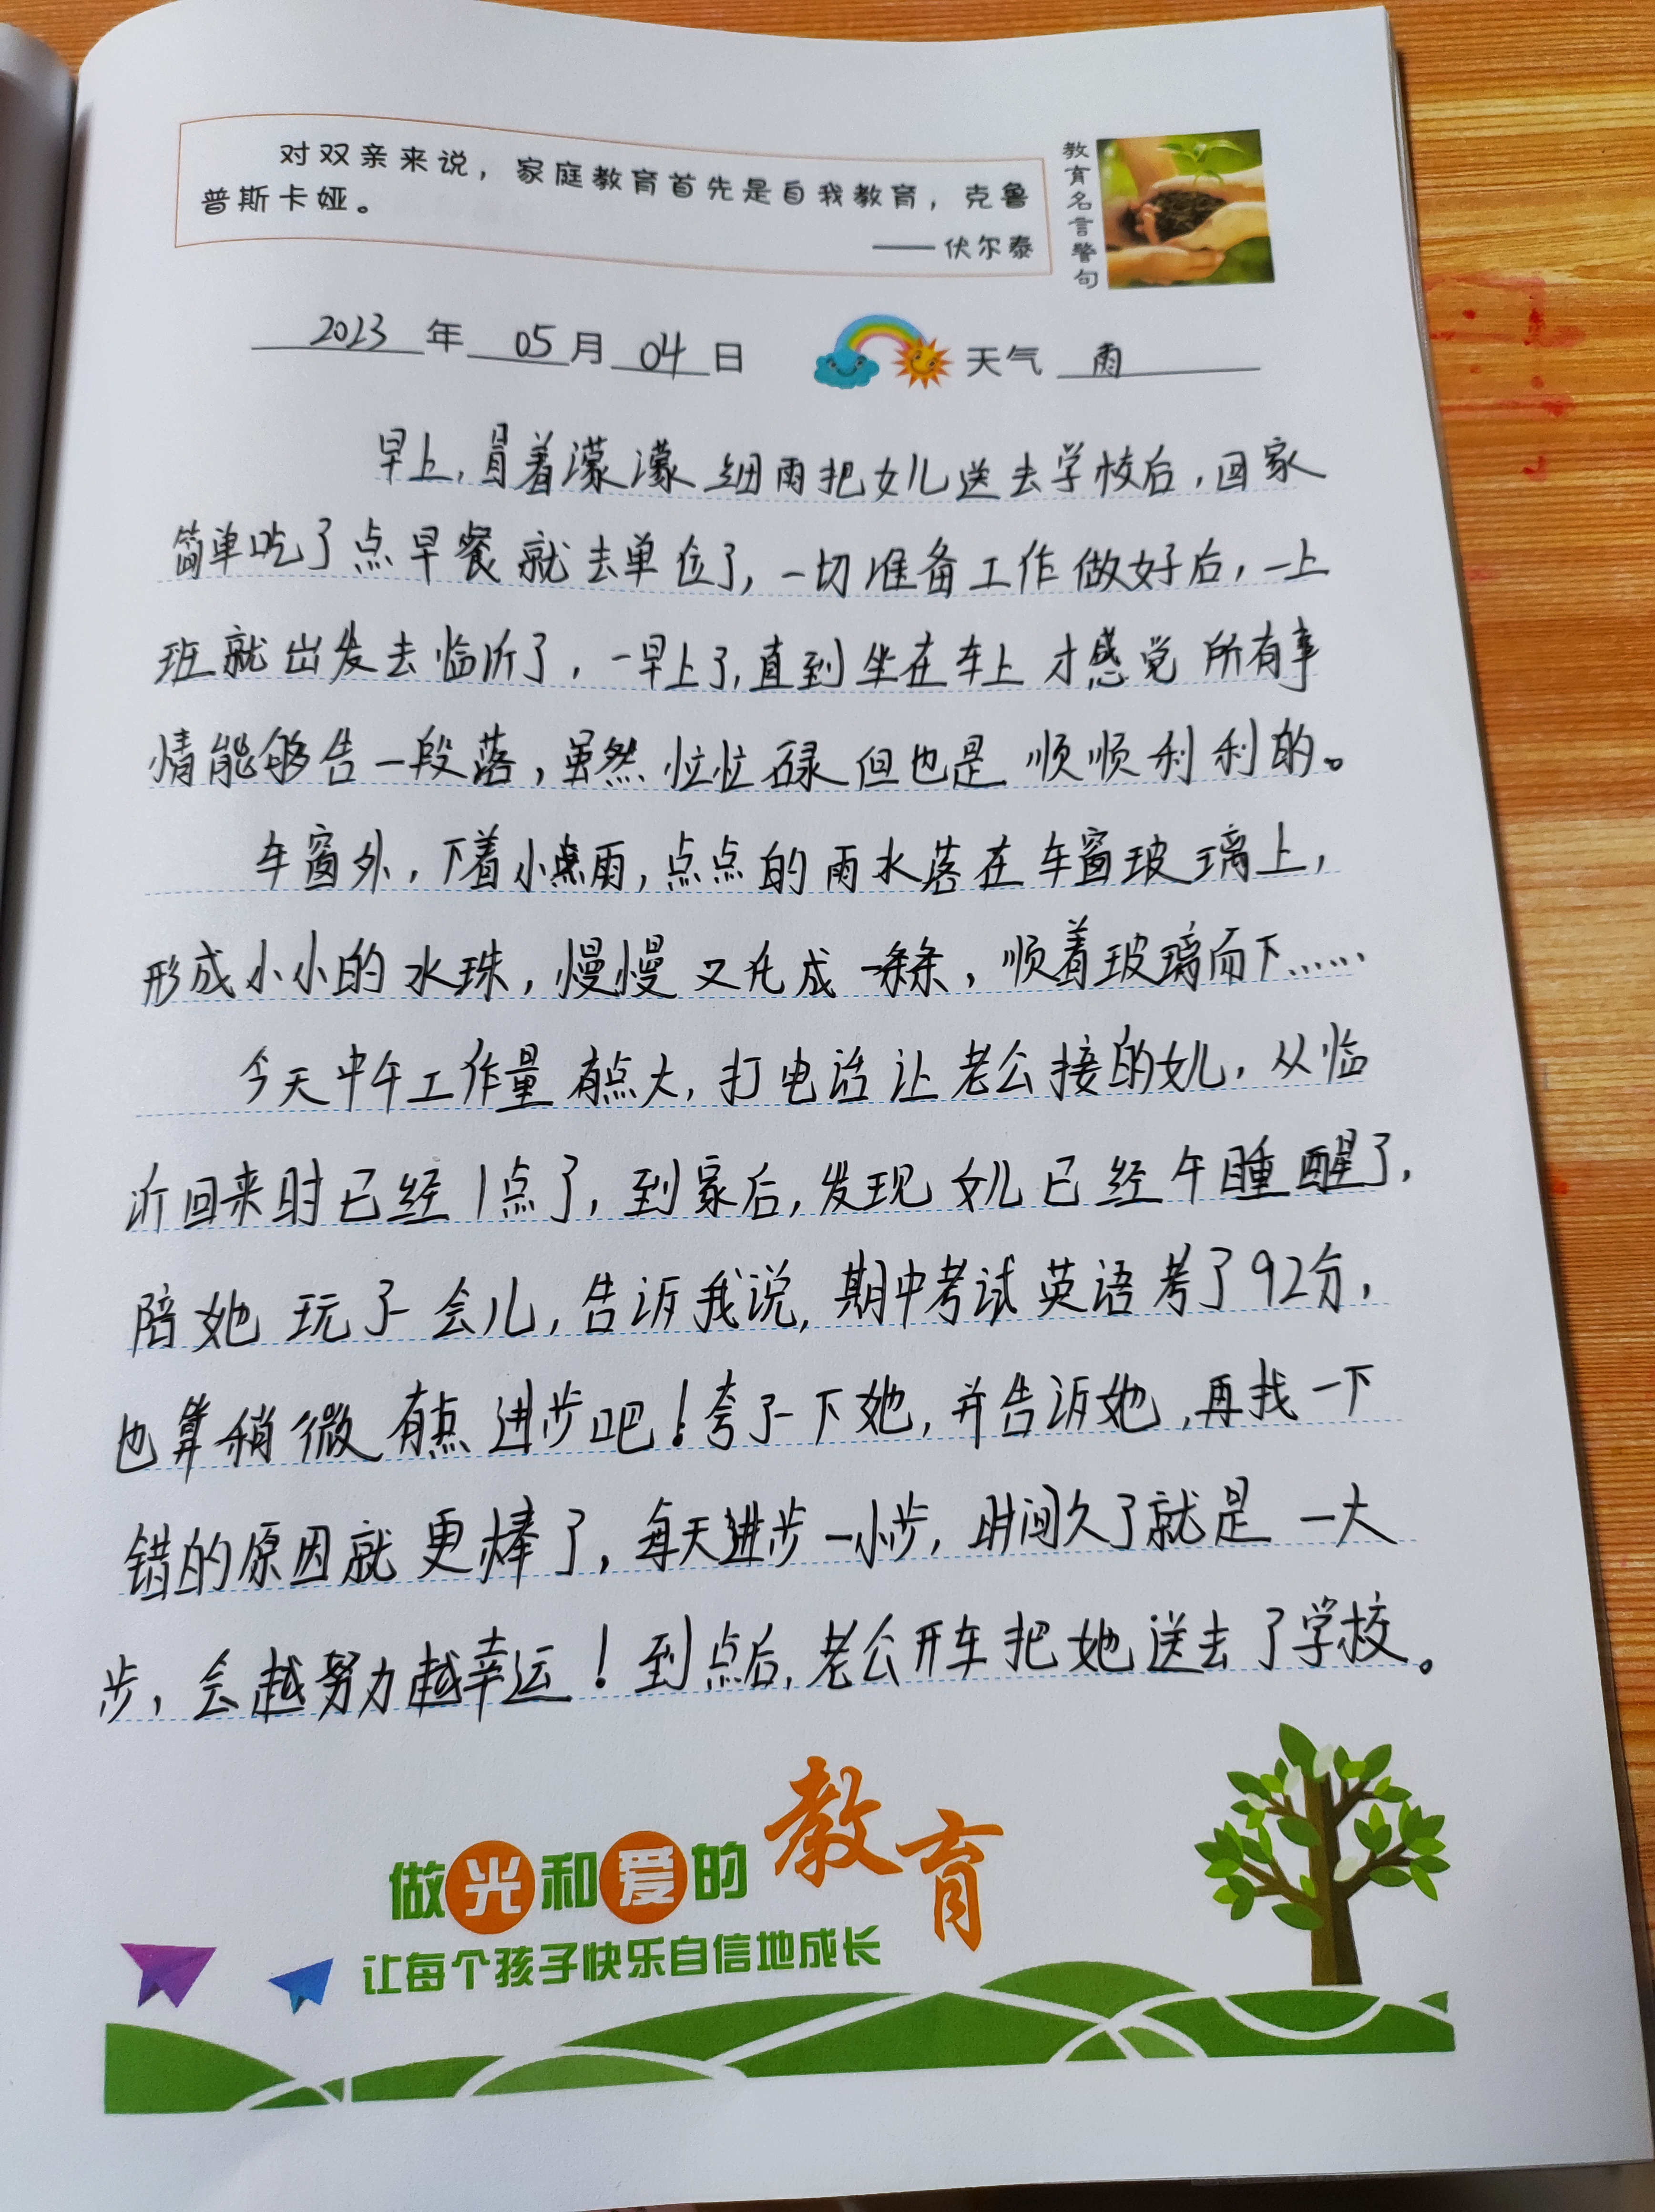 对双亲来说，家庭教育首先是自我教育，克鲁
普斯卡娅。
——伏尔泰
教育名言警句
2023年05月04日 天气 雨
早上，冒着濛濛细雨把女儿送去学校后，回家
简单吃了点早餐就去单位了，一切准备工作做好后，一上
班就出发去临沂了，一早上了，直到坐在车上才感觉所有事
情能够告一段落，虽然忙忙碌但也是顺顺利利的。
车窗外，下着小点雨，点点的雨水落在车窗玻璃上，
形成小小的水珠，慢慢又化成一条条，顺着玻璃而下……
今天中午工作量有点大，打电话让老公接的女儿，从临
沂回来时已经1点了，到家后，发现女儿已经午睡醒了，
陪她玩了一会儿，告诉我说，期中考试英语考了92分，
也算稍微有点进步吧！夸了一下她，并告诉她，再找一下
错的原因就更棒了，每天进步一小步，时间久了就是一大
步，会越努力越幸运！到点后，老公开车把她送去了学校。
做光和爱的教育
让每个孩子快乐自信地成长